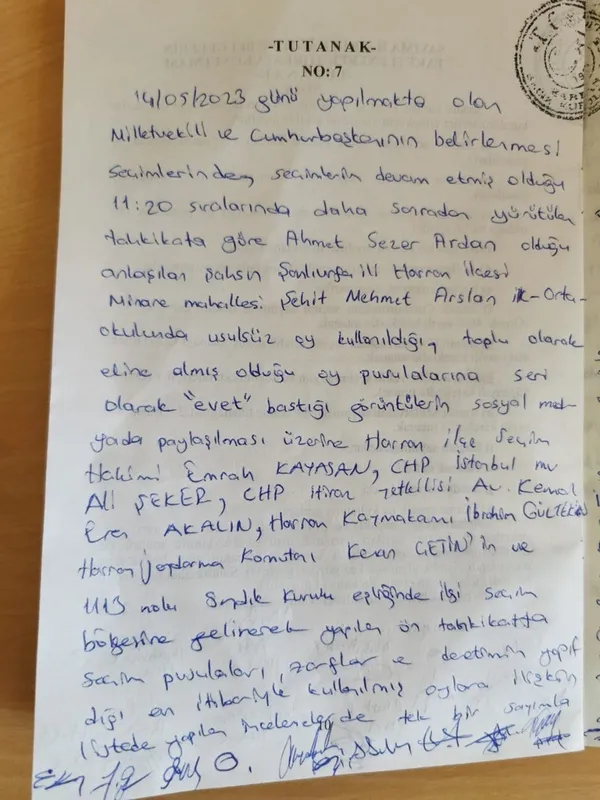 -TUTANAK-
NO: 7
14/05/2023 günü yapılmakta olan
Milletvekili ve Cumhurbaşkanının belirlenmesi
Seçimlerinden, seçimlerin devam etmiş olduğu
11:20 sıralarında daha sonradan yürütülen
tahkikata göre Ahmet Sezer Ardan olduğu
anlaşılan şahsın Şanlıurfa ili Harran ilçesi
Minare mahallesi Şehit Mehmet Arslan ilk-Orta-
okulunda usulsüz oy kullanıldığı, toplu olarak
eline almış olduğu oy pusulalarına seri
olarak "evet" bastığı görüntülerin sosyal med-
yada paylaşılması üzerine Harran ilçe Seçim
Hakimi Emrah KAYASAN, CHP İstanbul mv
Ali ŞEKER, CHP itiraz yetkilisi Av. Kemal
Eren AKALIN, Harran Kaymakamı İbrahim GÜLTEKİN
Harran Jandarma Komutanı Kenan ÇETİN'in ve
1113 nolu Sandık Kurulu eşliğinde ilgi seçim
bölgesine gelinerek yapılan ön tahkikatta
Seçim pusulaları, zarflar ve denetimin yapıl
dığı an itibariyle kullanılmış oylara ilişkin
listede yapılan incelemelerde tek bir sayımla